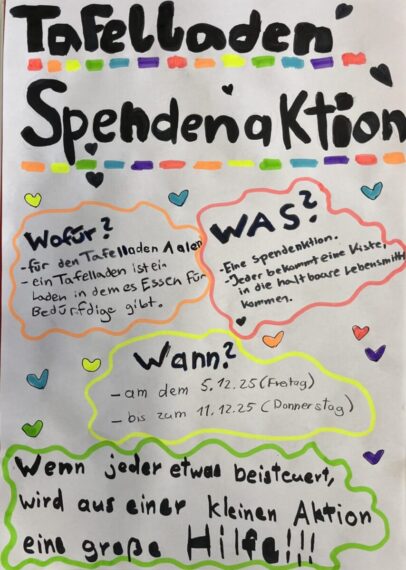 Tafelladen
Spendenaktion
Wofür?
- für den Tafelladen Aalen
- ein Tafelladen ist ein
Laden in dem es Essen für
Bedürfdige gibt.
WAS?
- Eine Spendenktion.
- Jeder bekommt eine Kiste,
in die haltbare Lebensmitt
kommen.
Wann?
- am dem 5.12.25 (Freitag)
- bis zum 11.12.25 (Donnerstag)
Wenn jeder etwas beisteuert,
wird aus einer kleinen Aktion
eine große Hilfe!!!